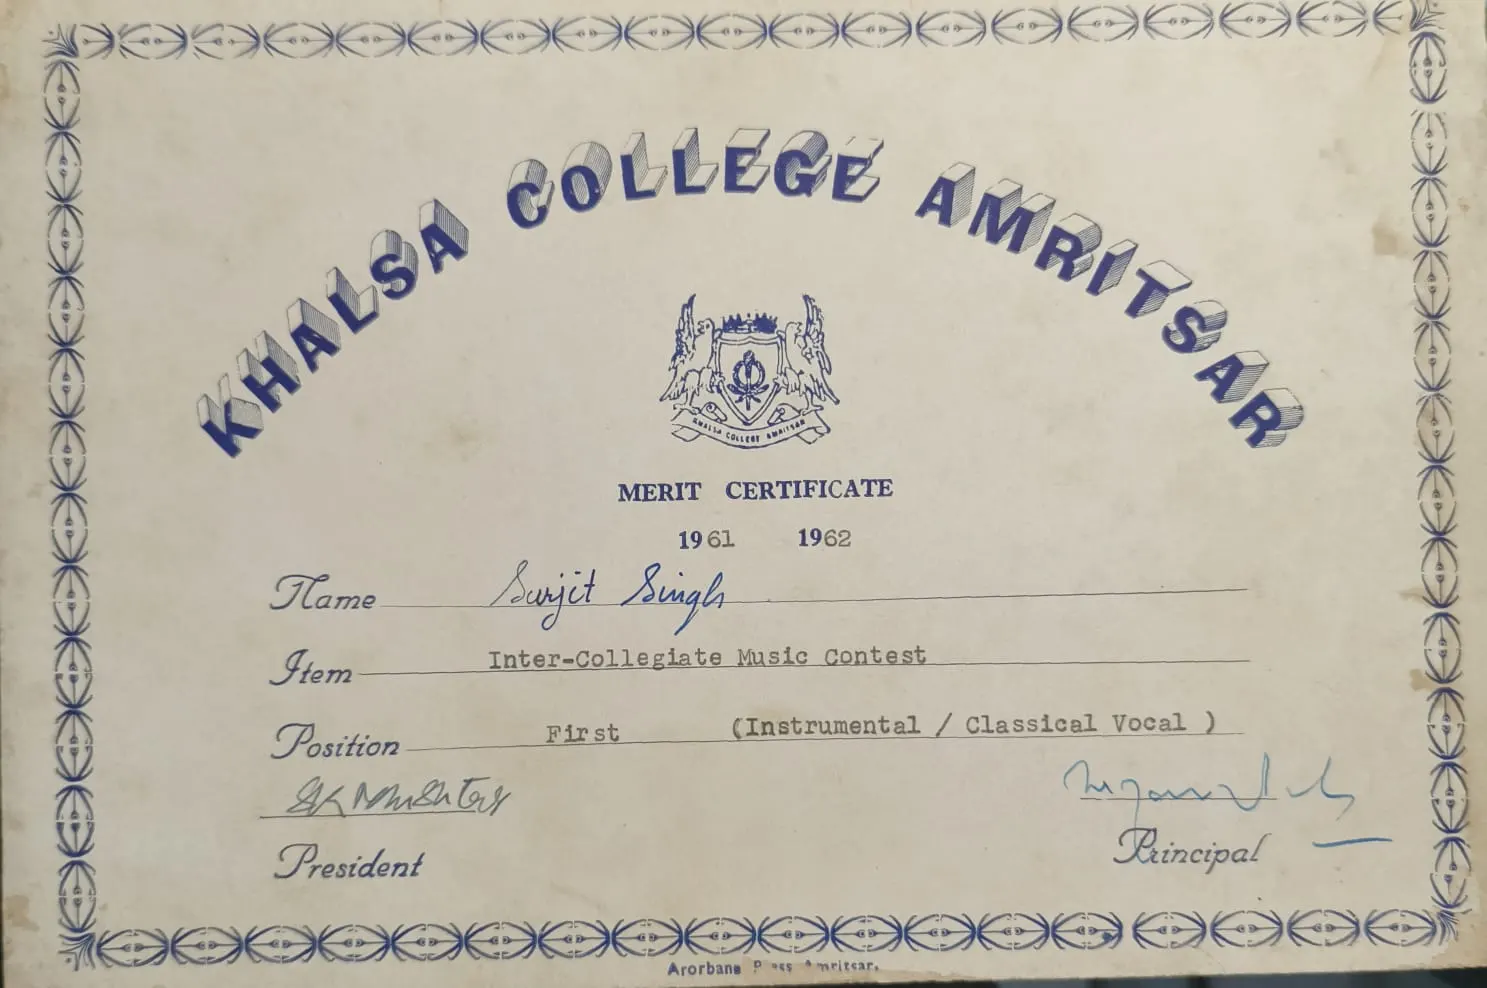 KHALSA COLLEGE AMRITSAR
KHALSA COLLEGE AMRITSAR
MERIT CERTIFICATE
1961 1962
Name Surjit Singh
Item Inter-Collegiate Music Contest
Position First (Instrumental / Classical Vocal )
President
Principal
Arorbans Press Amritsar.